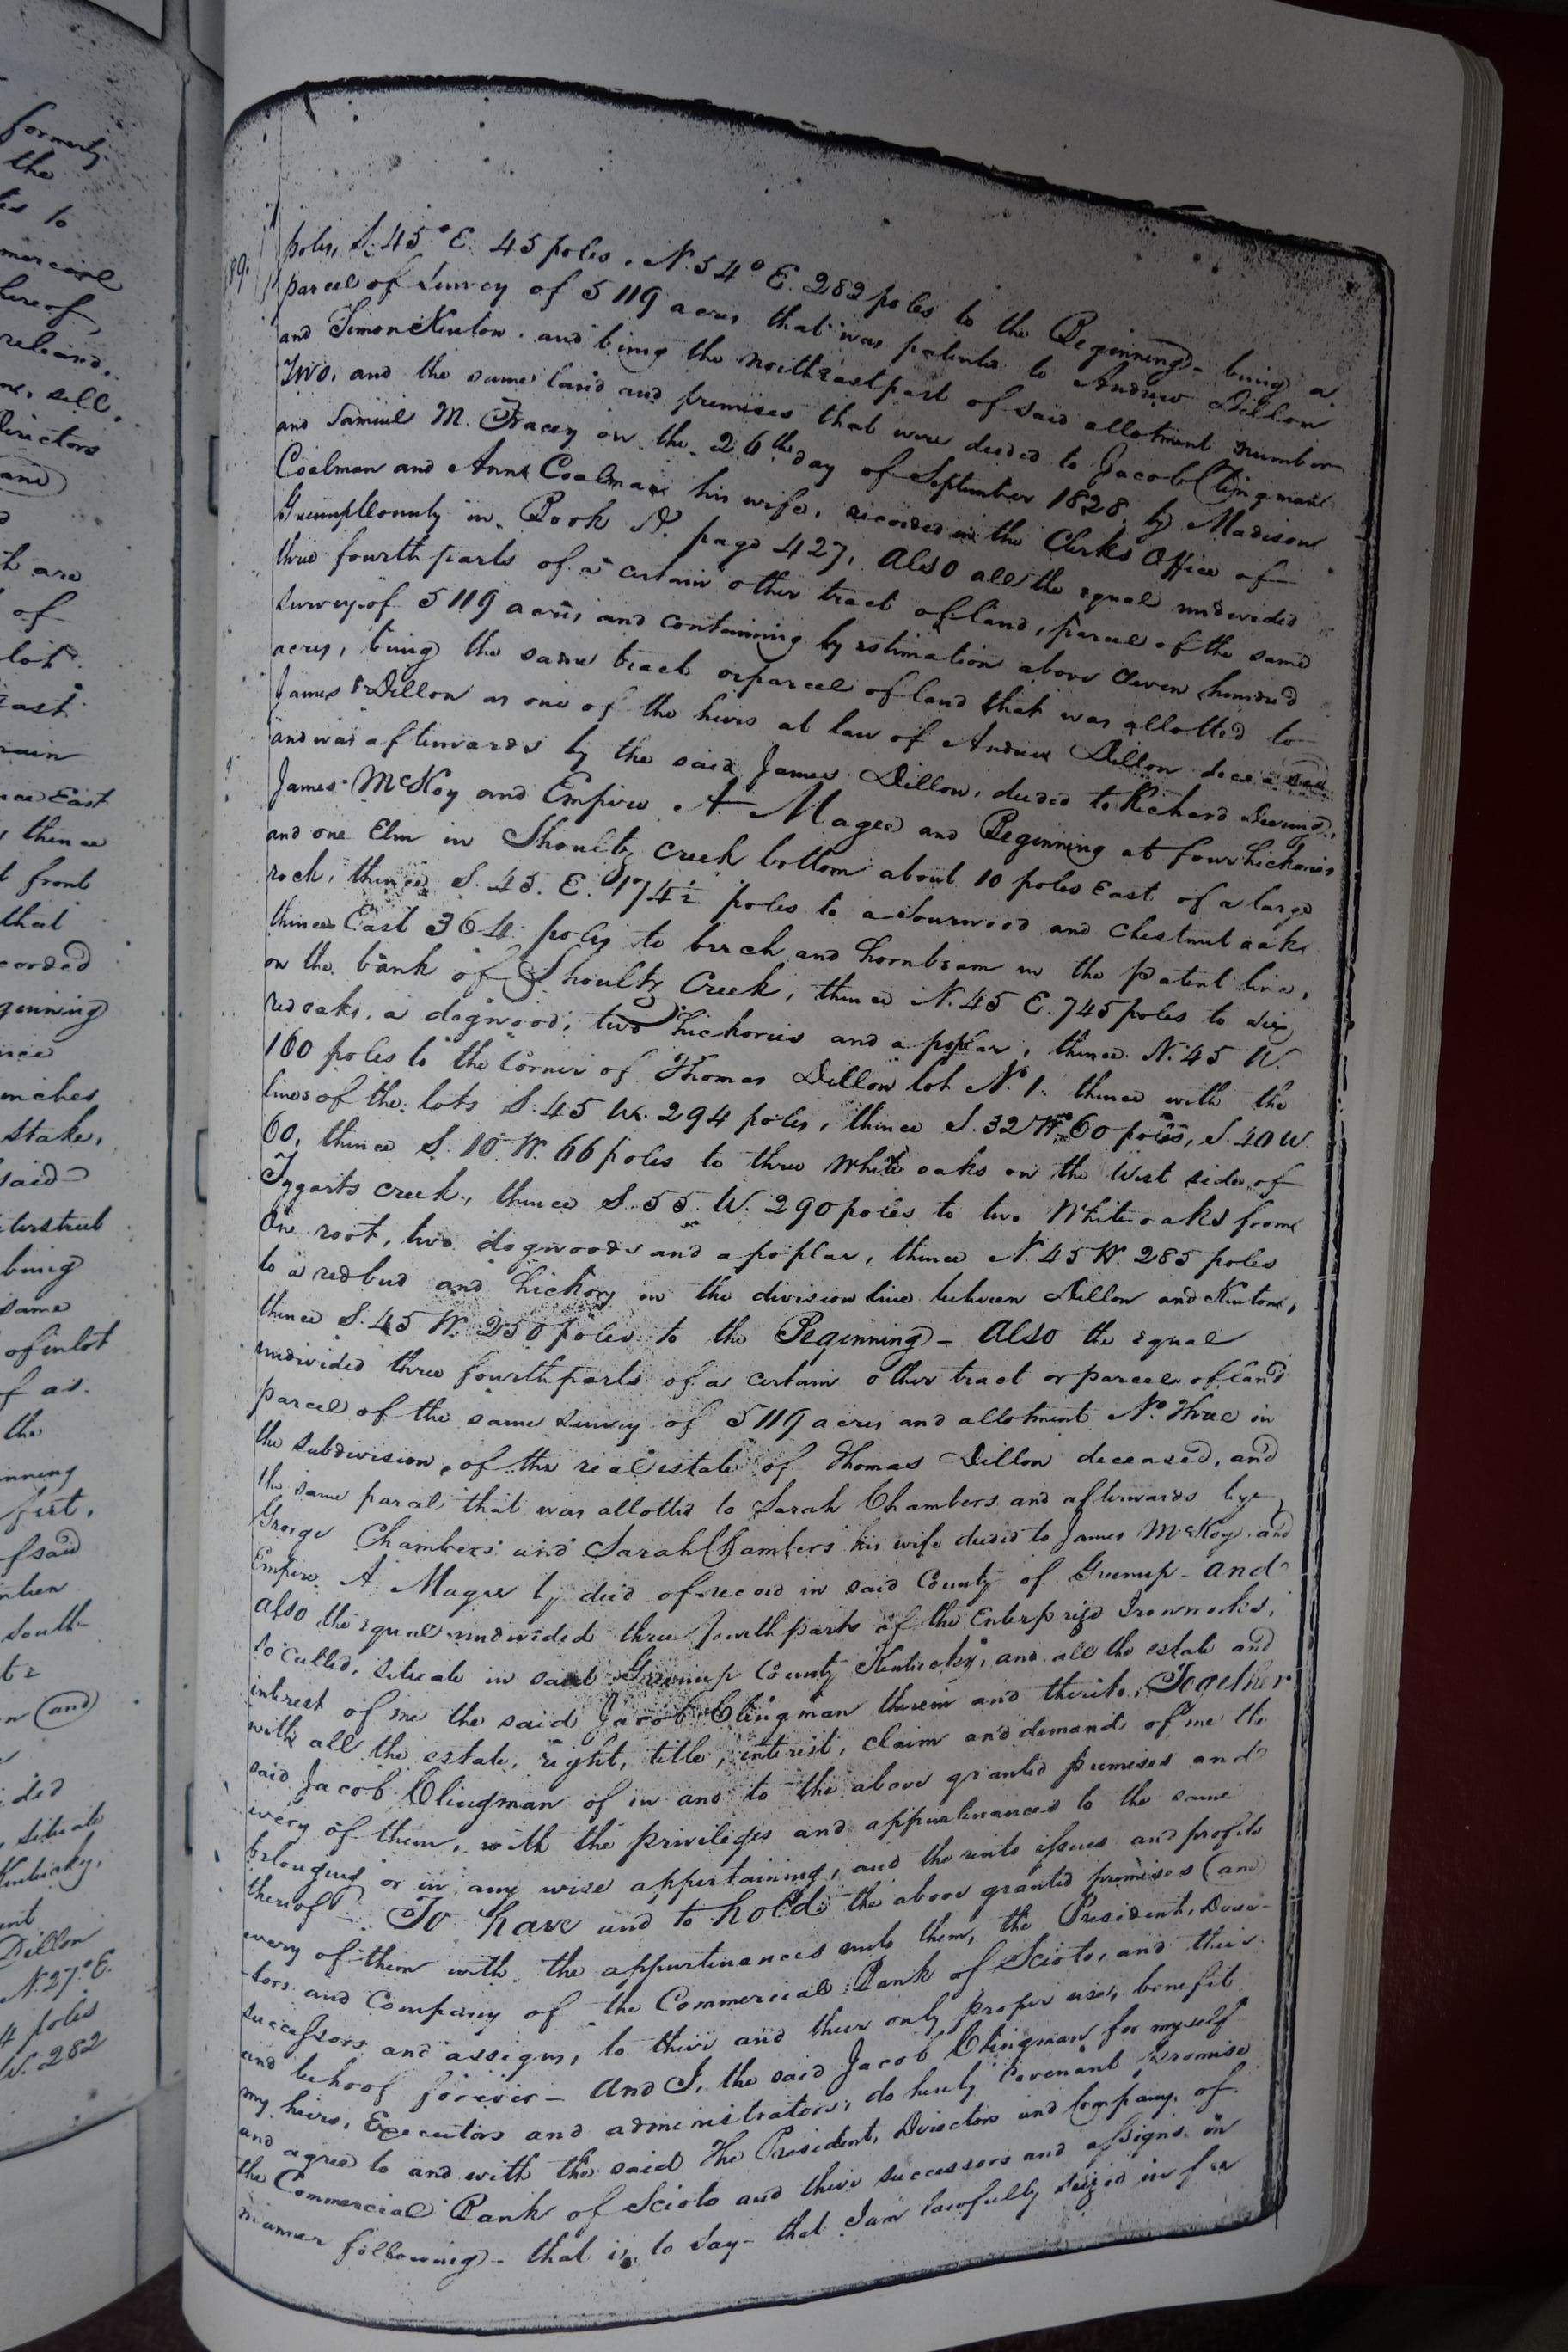 formerly
the
to
mercial
hereof,
sell,
Directors
and
are
of
lot
East
East
thence
front
that
corded
ginning
inches
stake,
said
being
same
of inlot
f as.
the
nning
feet,
f said
south
(and)
situate
Kentucky,
Dillon
N. 27° E.
4 poles
W. 282
189.
poles, S. 45° E. 45 poles. N. 54° E. 282 poles to the Beginning - being a
parcel of Survey of 5119 acres that was patented to Andrew Dillon
and Simon Kenton. and being the northeast part of said allotment number
Two, and the same land and premises that were deeded to Jacob Clingman
and Samuel M. Tracey on the 26th day of September 1828, by Madison
Coalman and Anna Coalman his wife, recorded in the Clerks Office of
Greenup County in Book A. page 427, Also all the equal undivided
three fourth parts of a certain other tract of land, parcel of the same
survey of 5119 acres, and containing by estimation above Eleven hundred
acres, being the same tract or parcel of land that was allotted to
James Dillon as one of the heirs at law of Andrew Dillon deceased
and was afterwards by the said James Dillon, deeded to Richard Deering,
James McKoy and Empire A Magee and Beginning at four hickories
and one Elm in Shoultz creek bottom about 10 poles East of a large
rock, thence S. 45. E. 174½ poles to a Sourwood and chestnut oak
thence East 364 poles to birch and hornbeam in the patent line,
on the bank of Shoultz Creek, thence N. 45 E. 745 poles to six
red oaks, a dogwood, two hickories and a poplar, thence N. 45 W.
160 poles to the Corner of Thomas Dillon lot No 1. thence with the
lines of the lots S. 45 W. 294 poles, thence S. 32 W. 60 poles, S. 40 W.
60, thence S. 10 W. 66 poles to three white oaks on the West side of
Tygarts creek, thence S. 55 W. 290 poles to two White oaks from
One root, two dogwoods and a poplar, thence N. 45 W. 285 poles
to a redbud and hickory in the division line between Dillon and Kenton,
thence S. 45 W. 250 poles to the Beginning - Also the equal
undivided three fourth parts of a certain other tract or parcel of land
parcel of the same survey of 5119 acres and allotment No. Three in
the subdivision of the real estate of Thomas Dillon deceased, and
the same parcel that was allotted to Sarah Chambers and afterwards by
George Chambers and Sarah Chambers his wife deeded to James McKoy and
Empire A Magee by deed of record in said County of Greenup - and
also the equal undivided three fourth parts of the Enterprize Ironworks,
so called, situate in said Greenup County Kentucky, and all the estate and
interest of me the said Jacob Clingman therein and thereto, Together
with all the estate, right, title, interest, claim and demand of me the
said Jacob Clingman of in and to the above granted premises and
every of them, with the privileges and appurtenances to the same
belonging or in any wise appertaining, and the rents issues and profits
thereof - To have and to hold the above granted premises (and
every of them with the appurtenances unto them, the President, Direc-
-tors and Company of the Commercial Bank of Scioto, and their
successors and assigns, to their and their only proper use, benefit
and behoof forever - And I, the said Jacob Clingman for myself
my heirs, Executors and administrators, do hereby Covenant, promise
and agree to and with the said The President, Directors and Company of
the Commercial Bank of Scioto and their successors and assigns in
manner following - that is to say - that I am lawfully seized in fee